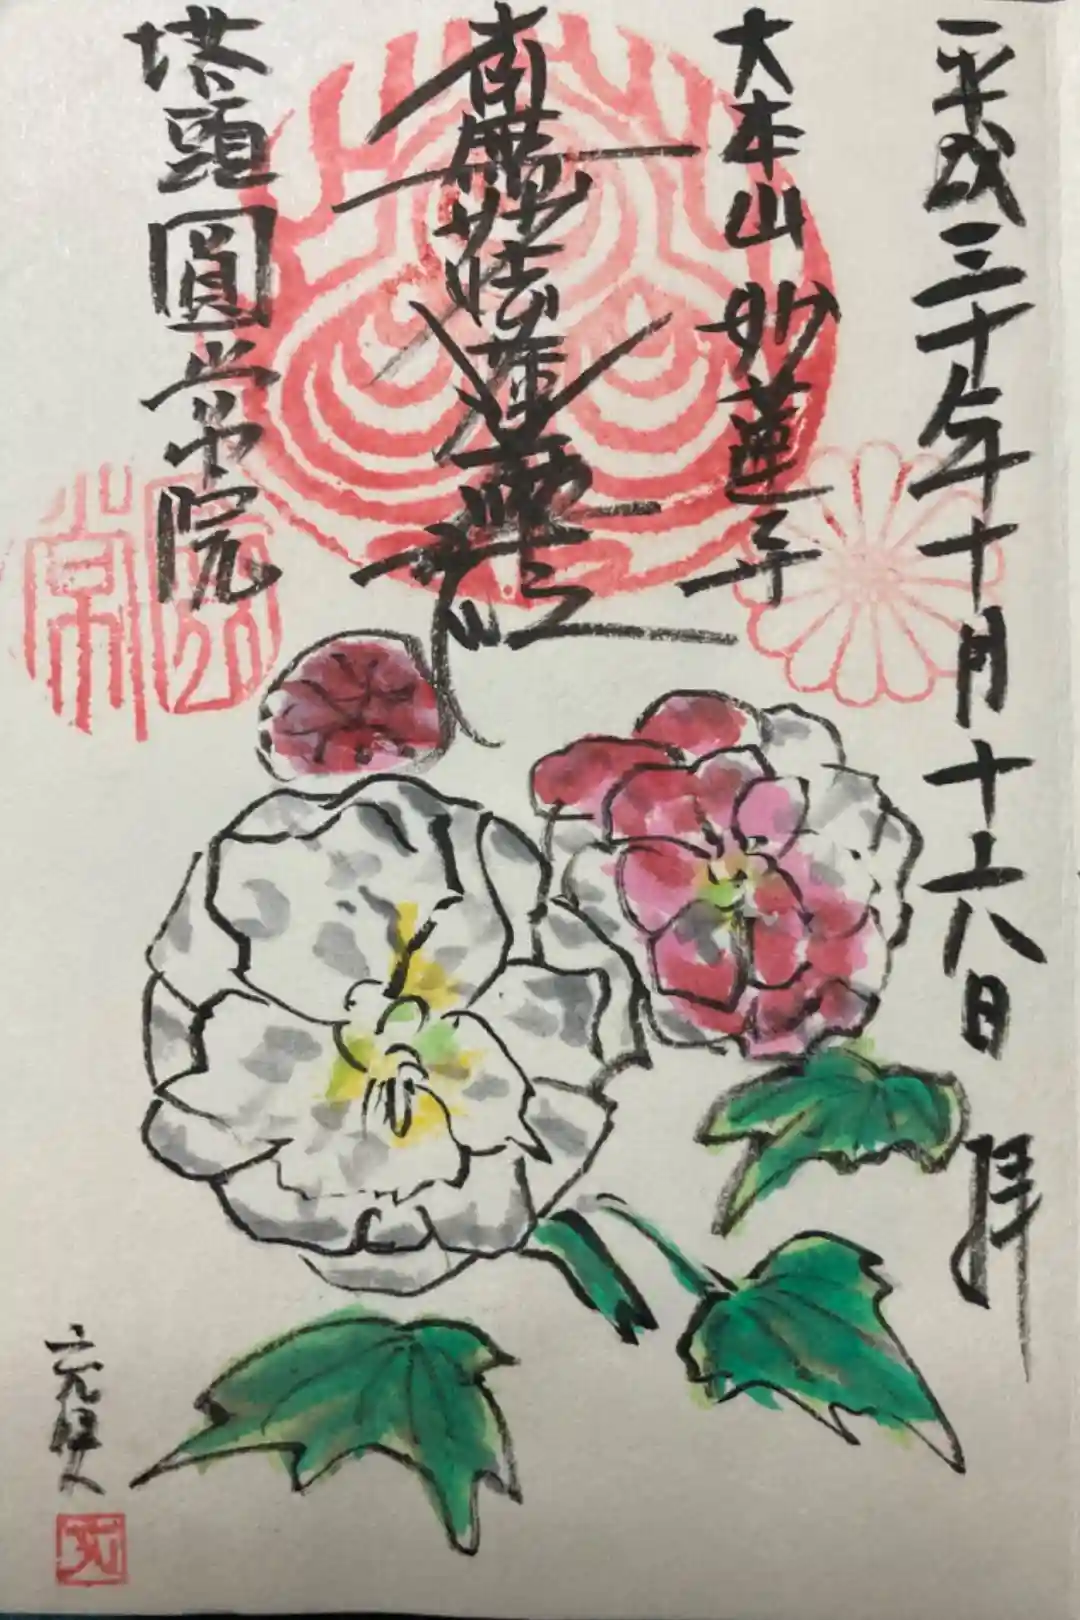 平成三十年十月十六日 拝
大本山 妙蓮寺
南無妙法蓮華経
塔頭 圓常院